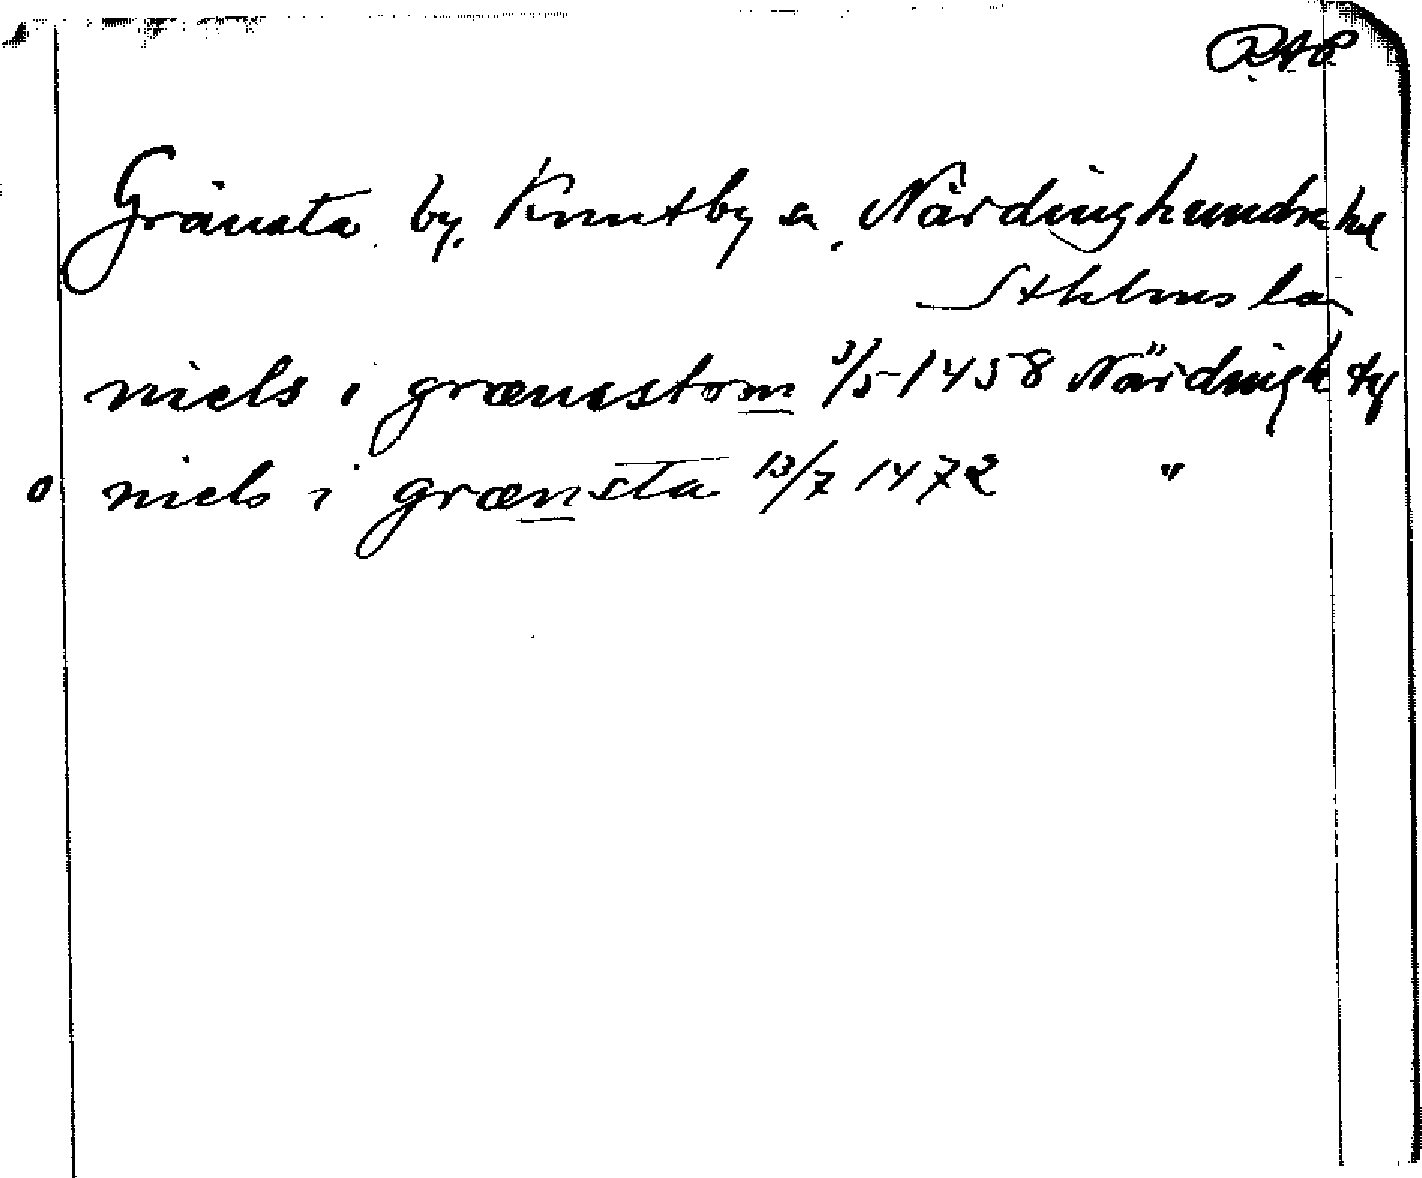 RAP
Gränsta by, Knutby sn, Närdinghundra hd
Sthlms län
niels i grænestom 3/5 1458 Närdingh tg
o niels i grænsta 13/7 1472 "